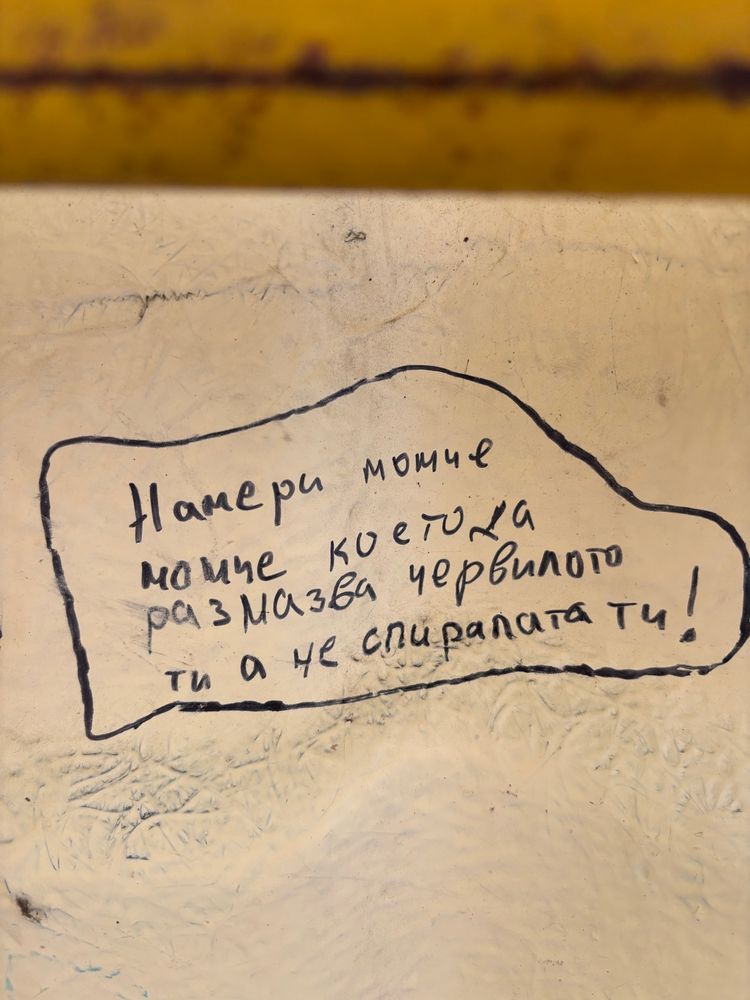 Намери момче
момче което да
размазва червилото
ти а не спиралата ти!